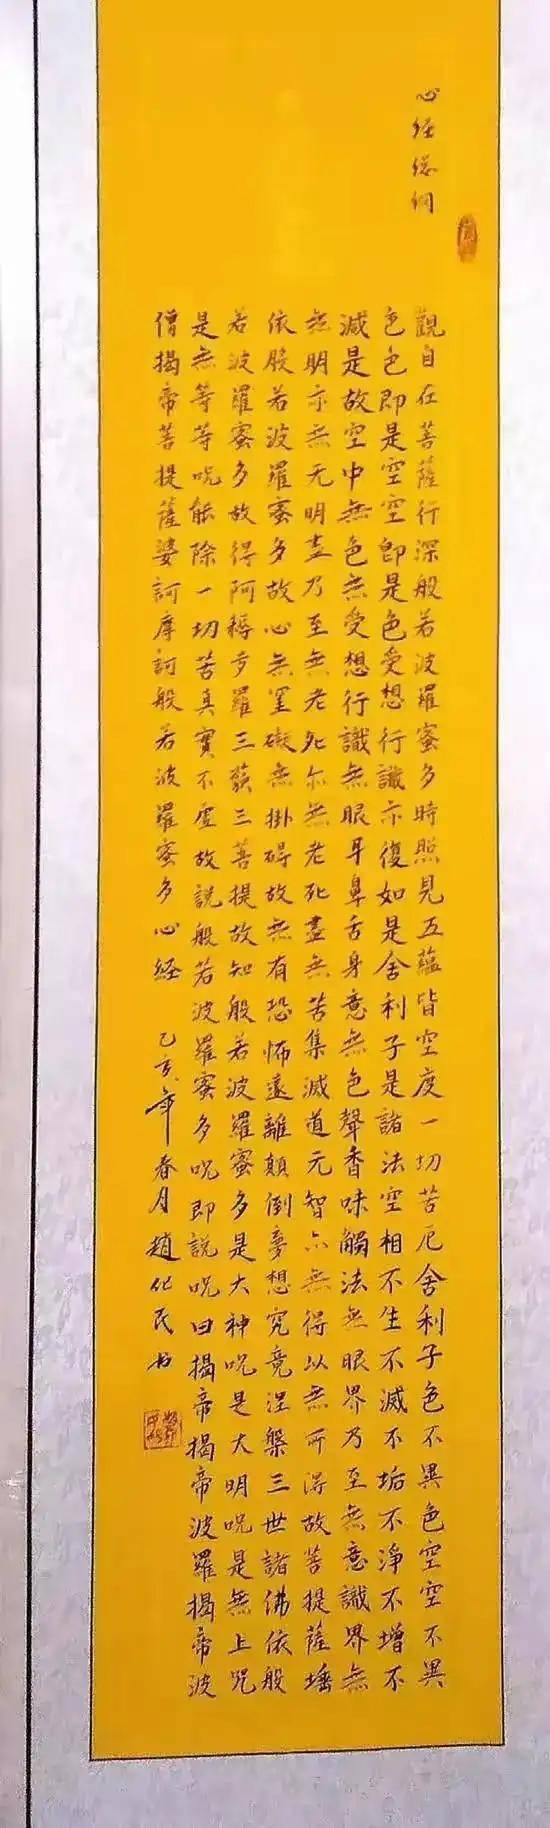 心经總綱
觀自在菩薩行深般若波羅蜜多時照見五蘊皆空度一切苦厄舍利子色不異色空空不異
色色即是空空即是色受想行識亦復如是舍利子是諸法空相不生不滅不垢不淨不增不
減是故空中無色無受想行識無眼耳鼻舌身意無色聲香味觸法無眼界乃至無意識界無
無明亦無无明盡乃至無老死亦無老死盡無苦集滅道无智亦無得以無所得故菩提薩埵
依般若波羅蜜多故心無罣礙無掛碍故無有恐怖遠離顛倒夢想究竟涅槃三世諸佛依般
若波羅蜜多故得阿耨多羅三藐三菩提故知般若波羅蜜多是大神呪是大明呪是無上呪
是無等等呪能除一切苦真實不虛故説般若波羅蜜多呪即説呪曰揭帝揭帝波羅揭帝波
僧揭帝菩提薩婆訶摩訶般若波羅蜜多心經 乙亥年春月趙化民书